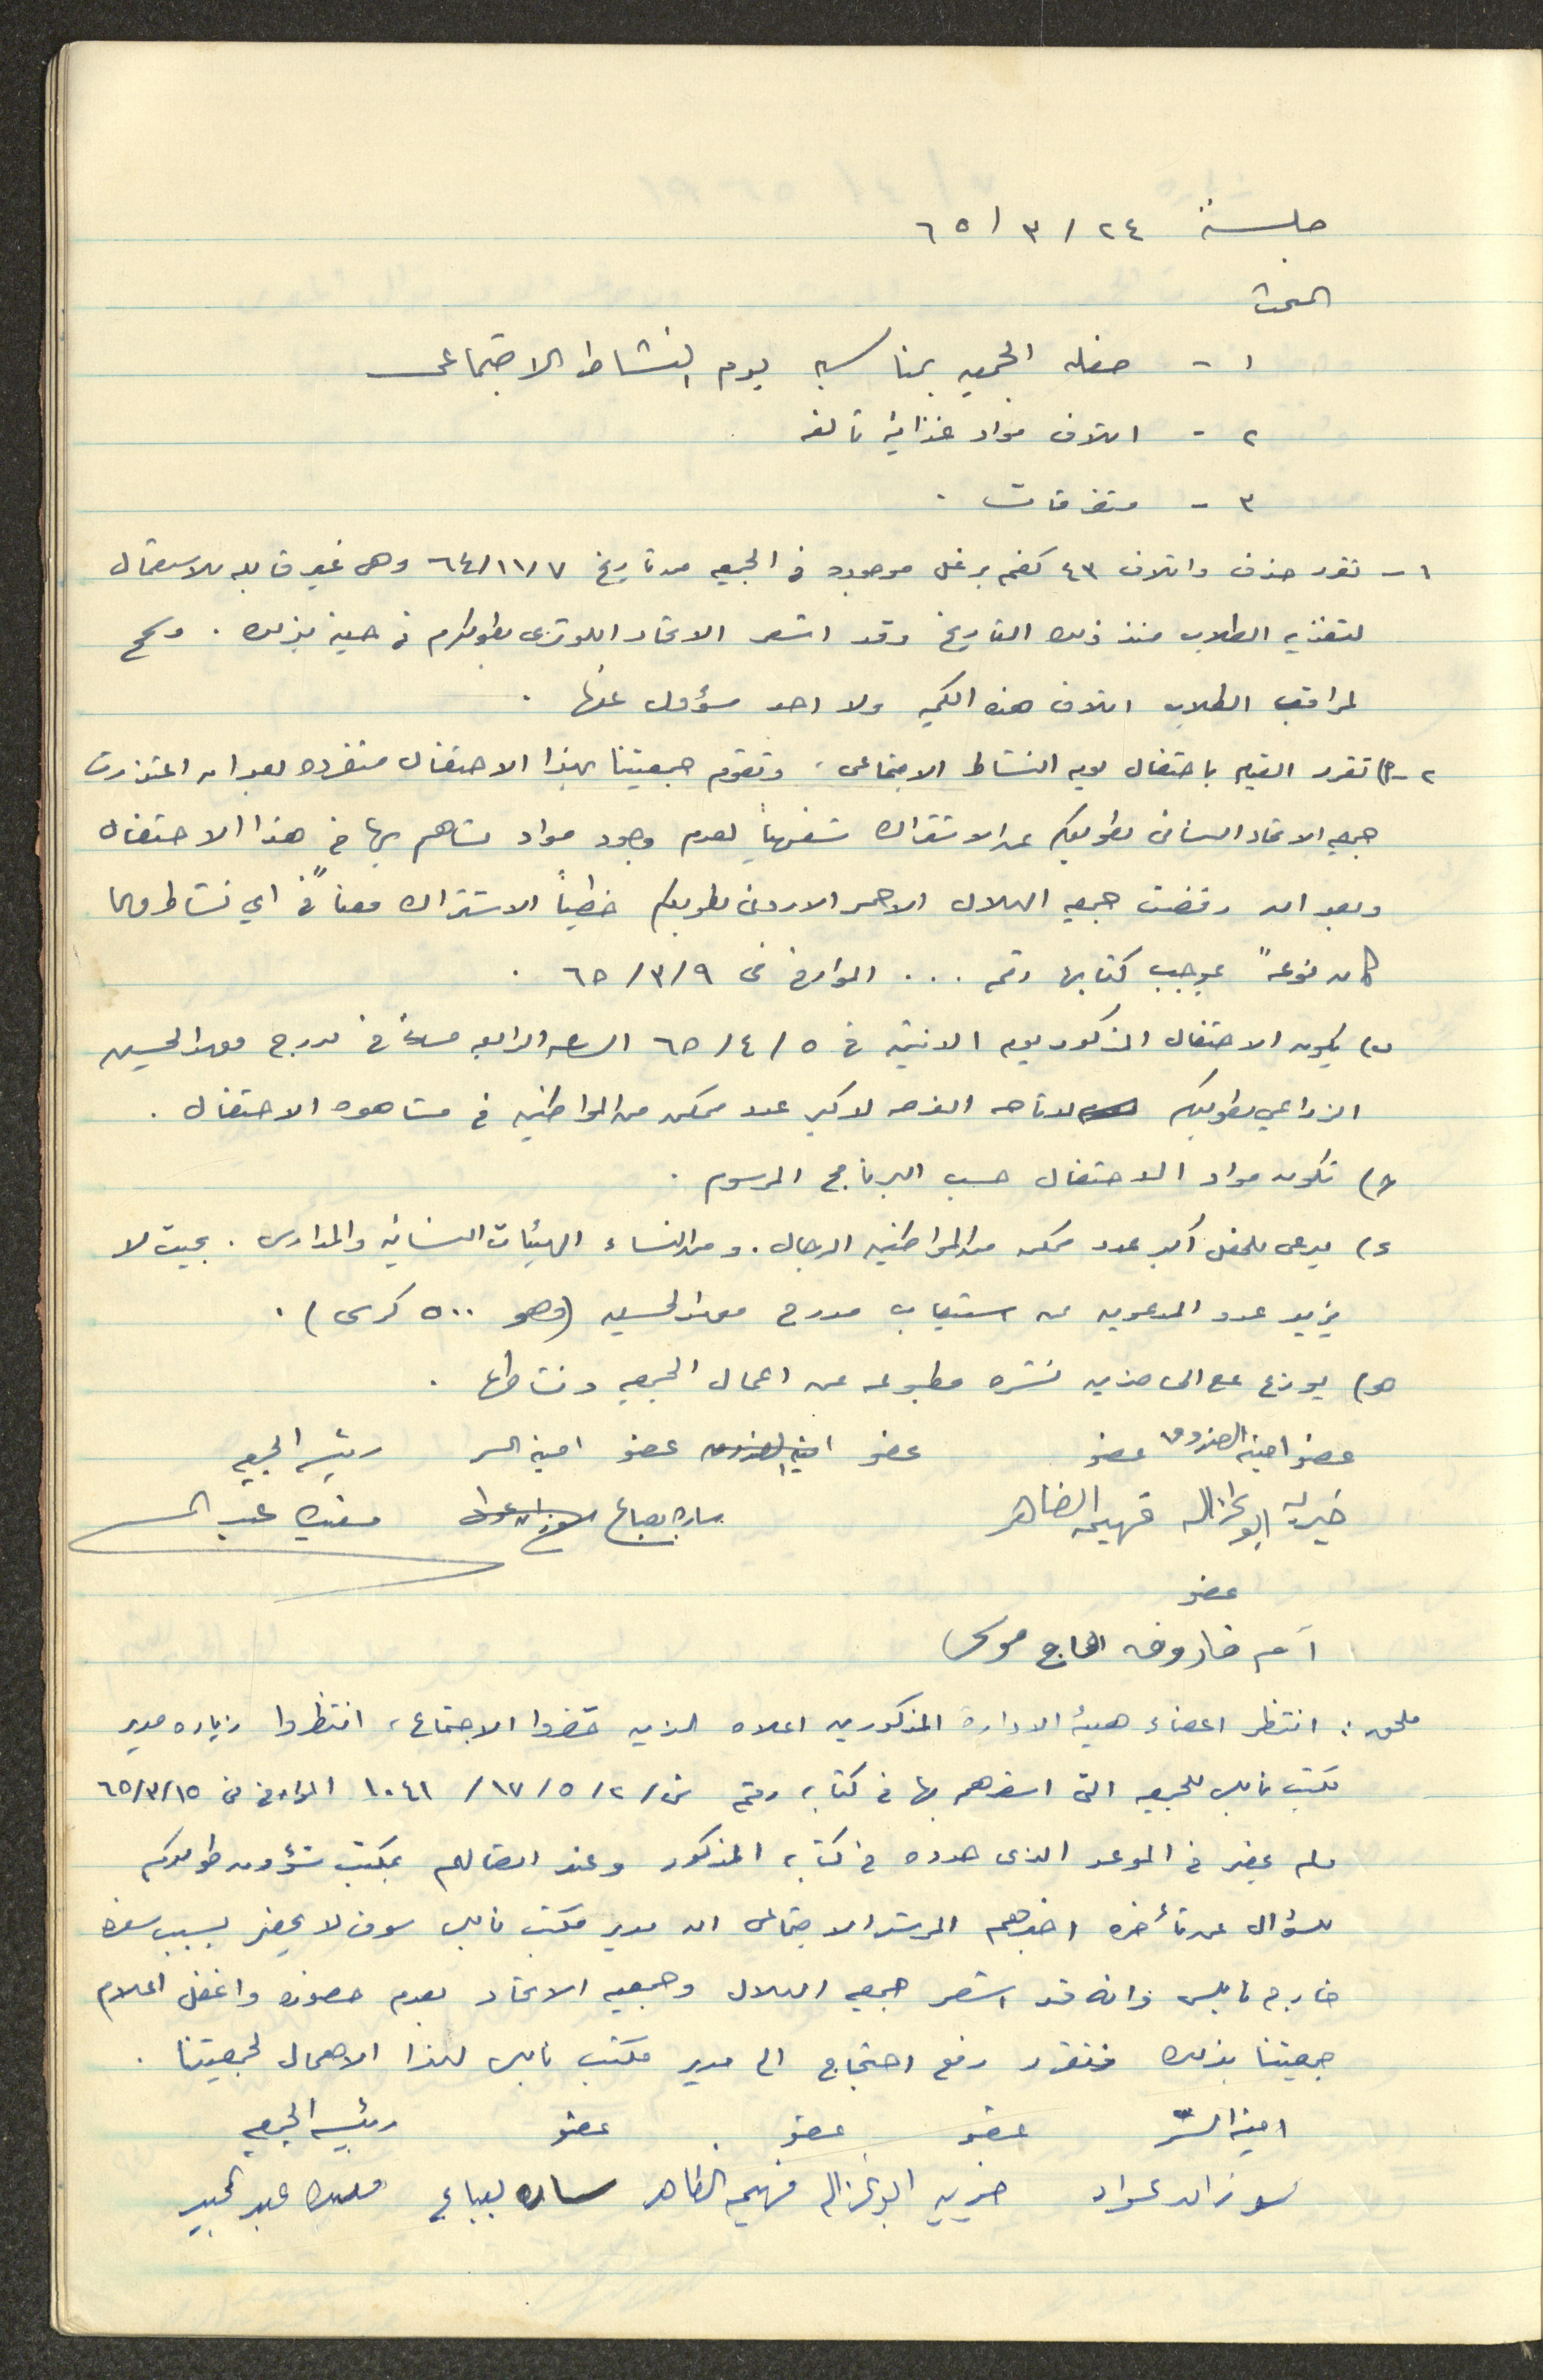 جلسة ٢٤ / ٣ / ٦٥
البحث
١ - حفله الجمعيه بمناسبة يوم النشاط الاجتماعي
٢ - اتلاف مواد غذائية تالفه
٣ - متفرقات .
١ - تقرر حذف واتلاف ٤٣ كغم برغل موجوده في الجمعيه من تاريخ ٧/١١/٦٤ وهي غير قابله للاستعمال
لتغذيه الطلاب منذ ذلك التاريخ وقد اشعر الاتحاد اللوثري بطولكرم في حينه بذلك . وسمح
لمراقب الطلاب اتلاف هذه الكميه ولا احد مسؤول عنها .
٢ - أ) تقرر القيام باحتفال يوم النشاط الاجتماعي ، وتقوم جمعيتنا بهذا الاحتفال منفرده بعد ان اعتذرت
جمعيه الاتحاد النسائي بطولكرم عن الاشتراك شفهياً لعدم وجود مواد تساهم بها في هذا الاحتفال
وبعد ان رفضت جمعيه الهلال الاحمر الاردني بطولكرم خطياً الاشتراك معنا "في اي نشاط مهما
كان نوعه" بموجب كتابها رقم ... المؤرخ في ٩/٣/٦٥ .
ب) يكون الاحتفال المذكور يوم الاثنين في ٥/٤/٦٥ الساعه الرابعه مساءً في مدرج معهد الحسين
الزراعي بطولكرم لاتاحه الفرصه لاكبر عدد ممكن من المواطنين في مشاهده الاحتفال .
ج) تكون مواد الاحتفال حسب البرنامج المرسوم .
د) يدعى للحفل أكبر عدد ممكن من المواطنين الرجال . ومن النساء الهيئات النسائيه والمدارس . بحيث لا
يزيد عدد المدعوين عن استيعاب مدرج معهد الحسين (وهو ٥٠٠ كرسي) .
هـ) يوزع على الحاضرين نشره مطبوعه عن اعمال الجمعيه ونشاطها .
عضو امينه الصندوق عضو عضو امينه الصندوق عضو امينه السر رئيسه الجمعيه
خيرية ابو غزاله فهيمه الظاهر ساره بعباع سوزان عواد مفيده عبد
عضو
أم فاروق الحاج موسى
ملحق : انتظر اعضاء هيئه الادارة المذكورين اعلاه الذين حضروا الاجتماع ، انتظروا زياره مدير
مكتب نابلس للجمعيه التي اشعرهم بها في كتابه رقم ش/٢/٥/١٧/١٠٤١ المؤرخ في ١٥/٣/٦٥
ولم يحضر في الموعد الذي حدده في كتابه المذكور وعند اتصالهم بمكتب شؤون طولكرم
للسؤال عن تأخره اخبرهم المرشد الاجتماعي ان مدير مكتب نابلس سوف لا يحضر بسبب سفره
خارج نابلس وانه قد اشعر جمعيه الهلال وجمعيه الاتحاد بعدم حضوره واغفل اعلام
جمعيتنا بذلك فتقرر رفع احتجاج الى مدير مكتب نابلس لهذا الاهمال لجمعيتنا .
امينه السر عضو عضو عضو رئيسه الجمعيه
سوزان عواد خيريه ابو غزاله فهيمه الظاهر ساره بعباع مفيده عبد المجيد